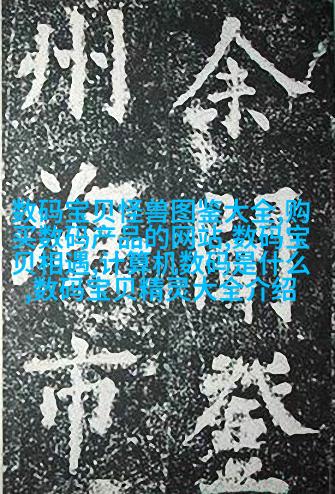 余登
州海市
数码宝贝怪兽图鉴大全,购
买数码产品的网站,数码宝
贝相遇,计算机数码是什么
,数码宝贝精灵大全介绍